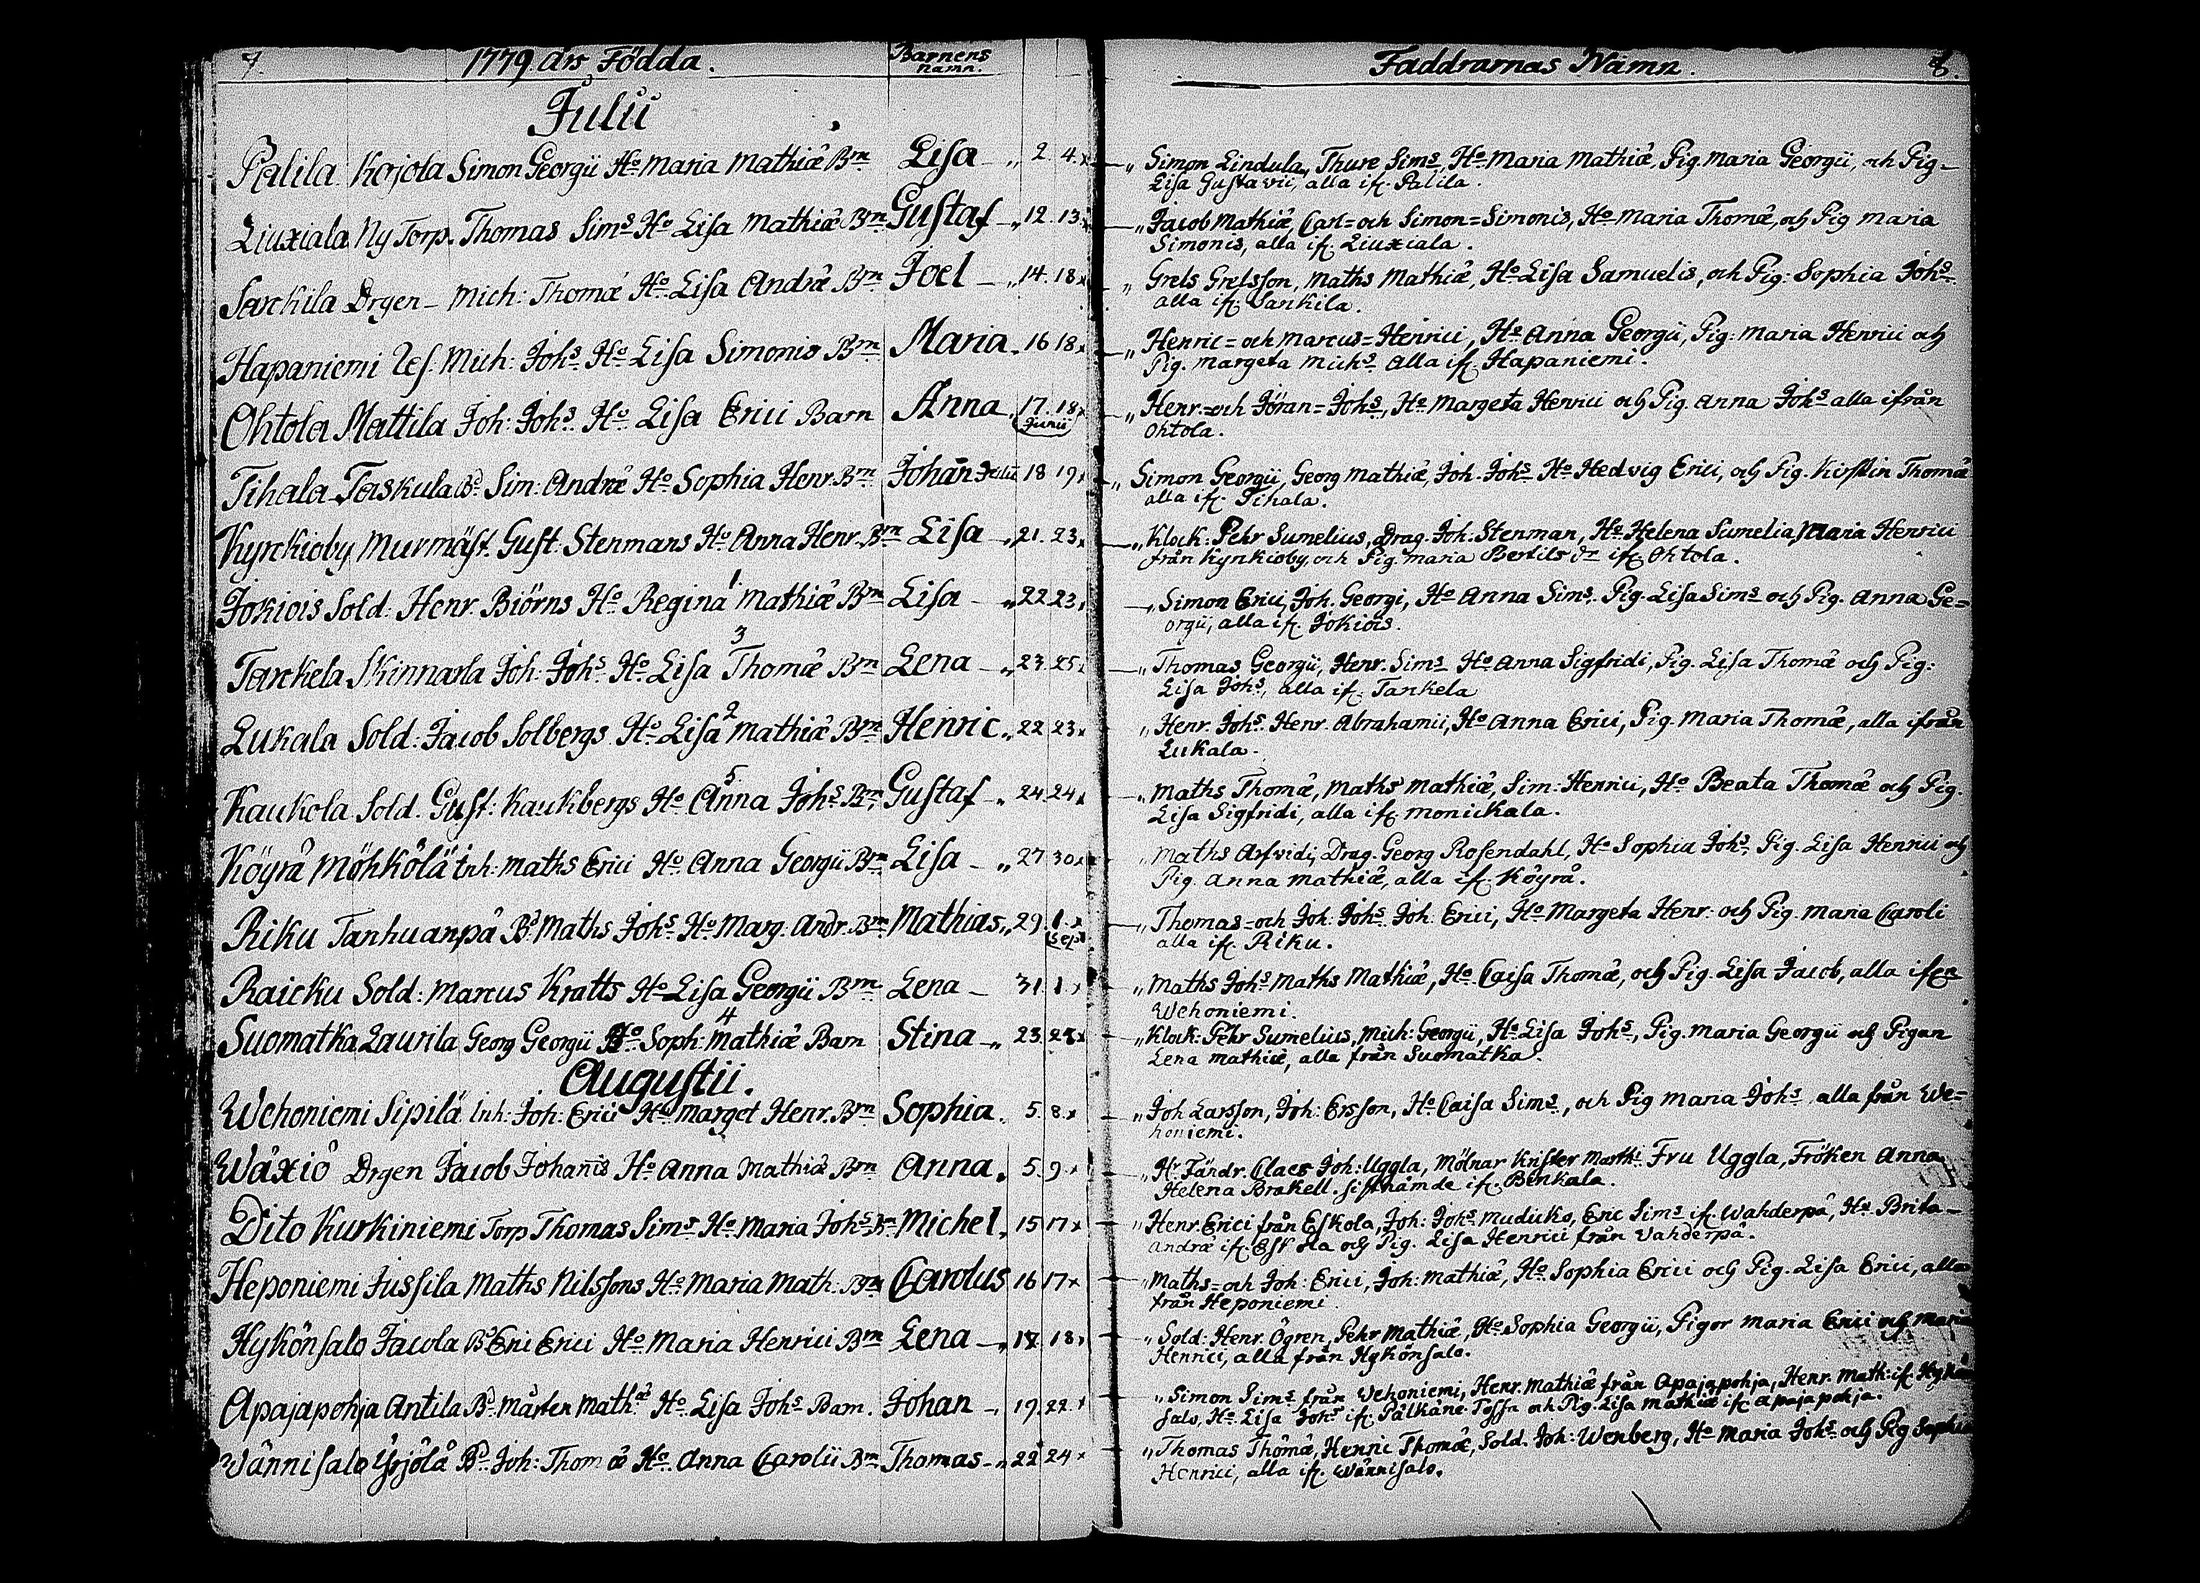 7. 1779 års Födda. Barnens namn.
Julii
Palila Kojola Simon Georgii Ho Maria Mathiæ Brn Lisa 2. 4. x
Liuxiala Ny Torp. Thomas Sims Ho Lisa Mathiæ Brn Gustaf „ 12. 13. x
Sarkila Drgen Mich: Thomæ Ho Lisa Andræ Brn Joel „ 14. 18 x
Hapaniemi Mich: Johs Ho Lisa Simonis Brn Maria „ 16 18 x
Ohtola Mattila Joh: Johs Ho Lisa Erici Barn Anna. 17. 18 x
Junii
Tihala Taskula Bd Sim: Andræ Ho Sophia Henr. Brn Johan Julii 18 19 x
Kyrckioby Murmäst. Gust: Stenmans Ho Anna Henr. Brn Lisa „ 21. 23. x
Jokiois Sold: Henr. Biörns Ho Regina 1 Mathiæ Brn Lisa „ 22 23.
Tarckela Skinnarla Joh: Johs Ho Lisa 3 Thomæ Brn Lena „ 23. 25.
Lukala Sold: Jacob Solbergs Ho Lisa 2 Mathiæ Brn Henric „ 22 23 x
Kaukola Sold. Gust: Kaukbergs Ho Anna 5 Johs Brn Gustaf „ 24. 24.
Köyrä Möhkölä Inh: Maths Erici Ho Anna Georgii Brn Lisa „ 27. 30 x
Riku Tanhuanpä Bd Maths Johs Ho Marg: Andr. Brn Mathias „ 29. 1. x
Raicku Sold: Marcus Kratts Ho Lisa Georgii Brn Lena 31. 1.
Suomatka Laurila Georg Georgii Ho Soph: 4 Mathiæ Barn Stina „ 23. 25 x
Augustii.
Wehoniemi Sipilä Inh: Joh: Erici Ho Marget Henr. Brn Sophia. 5. 8. x
Wäxiö Drgen Jacob Johanis Ho Anna Mathiæ Brn Anna. 5. 9. x
Dito Kurkiniemi Torp Thomas Sims Ho Maria Johs Brn Michel. 15 17 x
Heponiemi Jussila Maths Nilssons Ho Maria Math. Brn Carolus 16 17 x
Hykönsalo Jacola Bd Eric Erici Ho Maria Henrici Brn Lena „ 17. 18.
Apajapohja Antila Bd Mårten Mathæ Ho Lisa Johs Barn. Johan 19. 22.
Wännisalo Yrjölä Bd Joh: Thomæ Ho Anna Carolii Brn Thomas „ 22 24 x
Faddrarnas Namn. 8.
„ Simon Lindula, Thure Sims Ho Maria Mathiæ, Pig. Maria Georgii, och Pig
Lisa Gustavii, alla if. Palila.
„ Jacob Mathiæ, Carl= och Simon= Simonis, Ho Maria Thomæ, och Pig Maria
Simonis, alla if. Liuxiala.
„ Grels Grelsson, Maths Mathiæ, Ho Lisa Samuelis, och Pig: Sophia Johs
alla if. Sankila.
„ Henric= och Marcus= Henrici, Ho Anna Georgii, Pig: Maria Henrici och
Pig. Margeta Michs alla if. Hapaniemi.
„ Henr.= och Jöran= Johs, Ho Margeta Henrici och Pig. Anna Johs alla ifrån
Ohtola.
„ Simon Georgii, Georg Mathiæ, Joh. Johs Ho Hedvig Erici, och Pig. Kirstin Thomæ
alla if. Tihala.
„ Klock: Pehr Sumelius, Drag. Joh. Stenman, Ho Helena Sumelia, Maria Henrici
från Kyrckioby, och Pig. Maria Bertils dr if. Ohtola.
„ Simon Erici, Joh. Georgi, Ho Anna Sims. Pig. Lisa Sims och Pig. Anna Ge=
orgii, alla if. Jokiois.
„ Thomas Georgii, Henr. Sims Ho Anna Sigfridi, Pig. Lisa Thomæ och Pig:
Lisa Johs, alla if. Tarkela
„ Henr. Johs. Henr. Abrahamii, Ho Anna Erici, Pig. Maria Thomæ, alla ifrån
Lukala.
„ Maths Thomæ, Maths Mathiæ, Sim: Henrici, Ho Beata Thomæ och Pig.
Lisa Sigfridi, alla if. Monickala.
„ Maths Arfvidi, Drag. Georg Rosendahl, Ho Sophia Johs. Pig. Lisa Henrici och
Pig. Anna Mathiæ, alla if. Köyrä.
„ Thomas= och Joh: Johs Joh: Erici, Ho Margeta Henr. och Pig. Maria Caroli
alla if. Riku.
„ Maths Johs Maths Mathiæ, Ho Caisa Thomæ, och Pig. Lisa Jacob, alla ifrn
Wehoniemi.
„ Klock: Pehr Sumelius, Mich: Georgii, Ho Lisa Johs, Pig. Maria Georgii och Pigan
Lena Mathiæ, alla från Suomatka.
„ Joh Larsson, Joh: Ersson, Ho Caisa Sims, och Pig Maria Johs alla från We=
honiemi.
„ Hr Fändr. Claes Joh: Uggla, Mölnar Krister Fru Uggla, Fröken Anna
Helena Brakell. sistnämde if. Benkala.
„ Henr. Erici från Eskola, Joh: Johs Eric Sims if. Wahderpä, Ho Brita
Andræ if. Eskola och Pig. Lisa Henrici från Vahderpä.
„ Maths= och Joh: Erici, Joh: Mathiæ, Ho Sophia Erici och Pig. Lisa Erici, alla
från Heponiemi.
„ Sold: Henr. Ögren, Pehr Mathiæ, Ho Sophia Georgii, Pigor Maria Erici och Maria
Henrici, alla från Hykönsalo.
„ Simon Sims från Vehoniemi, Henr. Mathiæ från Apajapohja, Henr. Math: if. Hykön
salo, Ho Lisa Johs if. Pälkäne och Pig. Lisa Mathiæ if. Apajapohja.
„ Thomas Thomæ, Henric Thomæ, Sold. Joh: Wenberg, Ho Maria Johs och Pig Sophia
Henrici, alla if. Wännisalo.